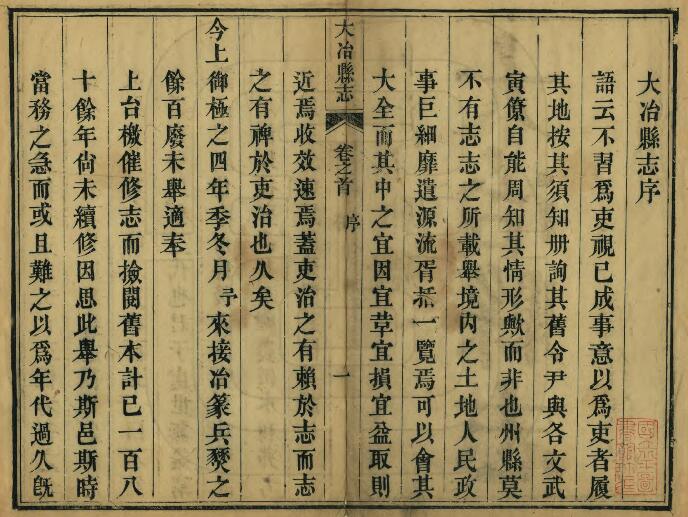 大冶縣志序
語云不習爲吏視已成事意以爲吏者履
其地按其須知册詢其舊令尹與各文武
寅僚自能周知其情形歟而非也州縣莫
不有志志之所載舉境内之土地人民政
事巨細靡遺源流胥括一覽焉可以會其
大全而其中之宜因宜革宜損宜益取則
大冶縣志
卷之首
序
一
近焉收效速焉蓋吏治之有賴於志而志
之有裨於吏治也久矣
今上御極之四年季冬月予來接冶篆兵燹之
餘百廢未舉適奉
上台檄催修志而撿閱舊本計已一百八
十餘年尙未續修因思此舉乃斯邑斯時
當務之急而或且難之以爲年代過久旣